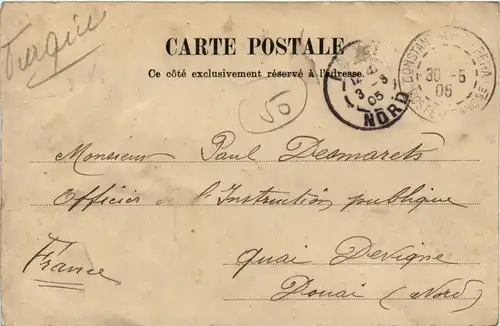 Turquie
CARTE POSTALE
Ce côté exclusivement réservé à l'adresse.
3 - 6
05
NORD
CONSTANTINOPLE PERA
30 - 5
05
POSTE FRANÇAISE
50
Monsieur Paul Desmarets
Officier de l'Instruction publique
quai Devigne
France
Douai (Nord)